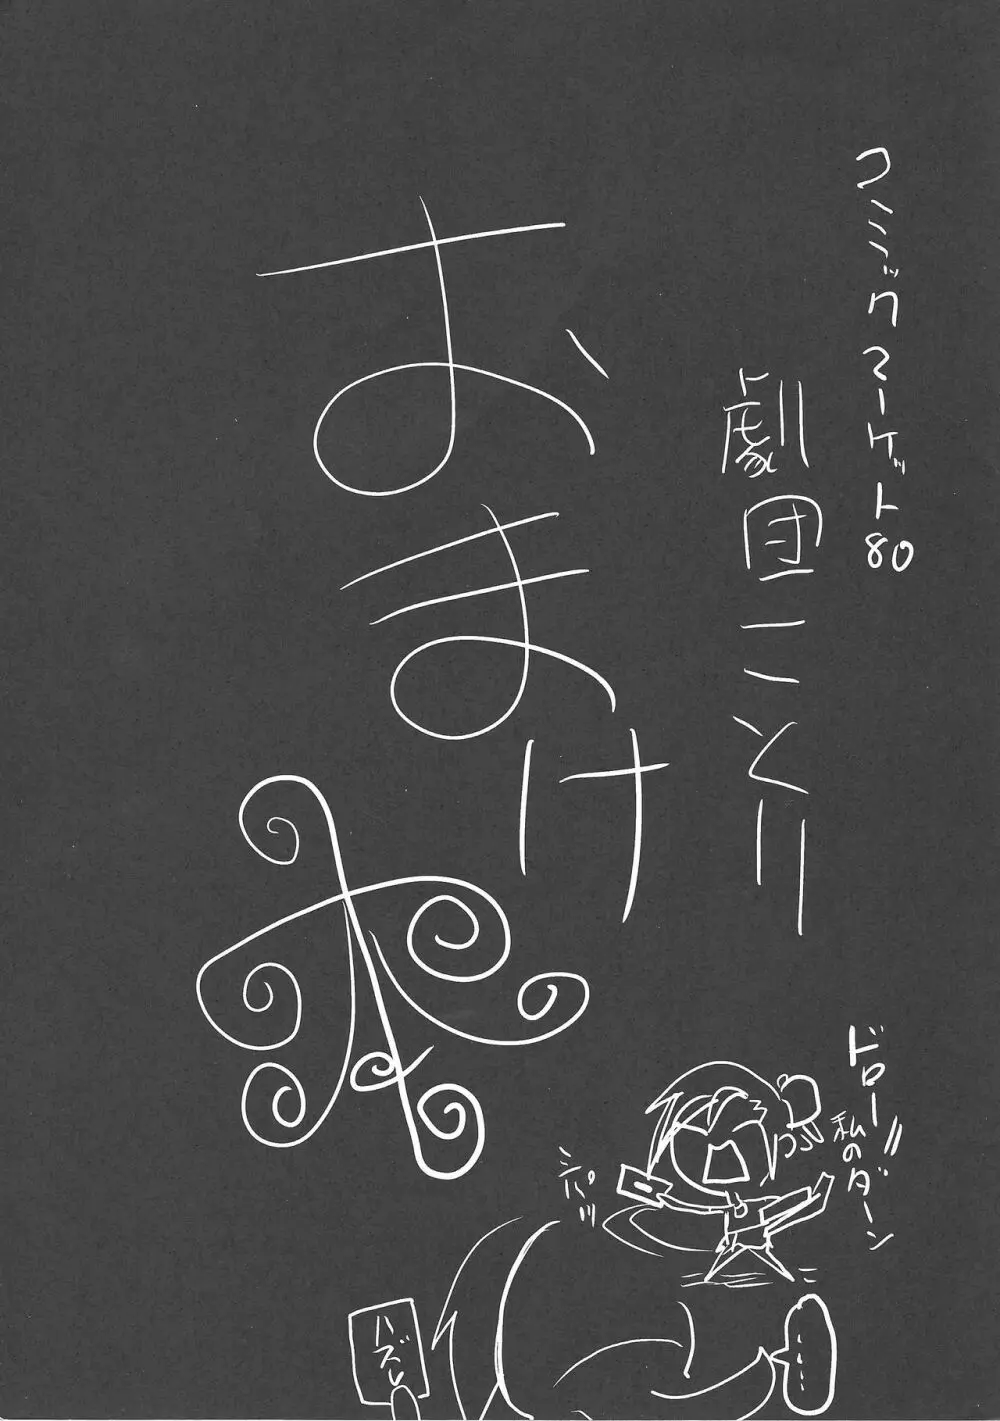 コミックマーケット80
劇団ことり
おまけ本
ドロー!!
私のダーン
シパッ
ハズレ
……